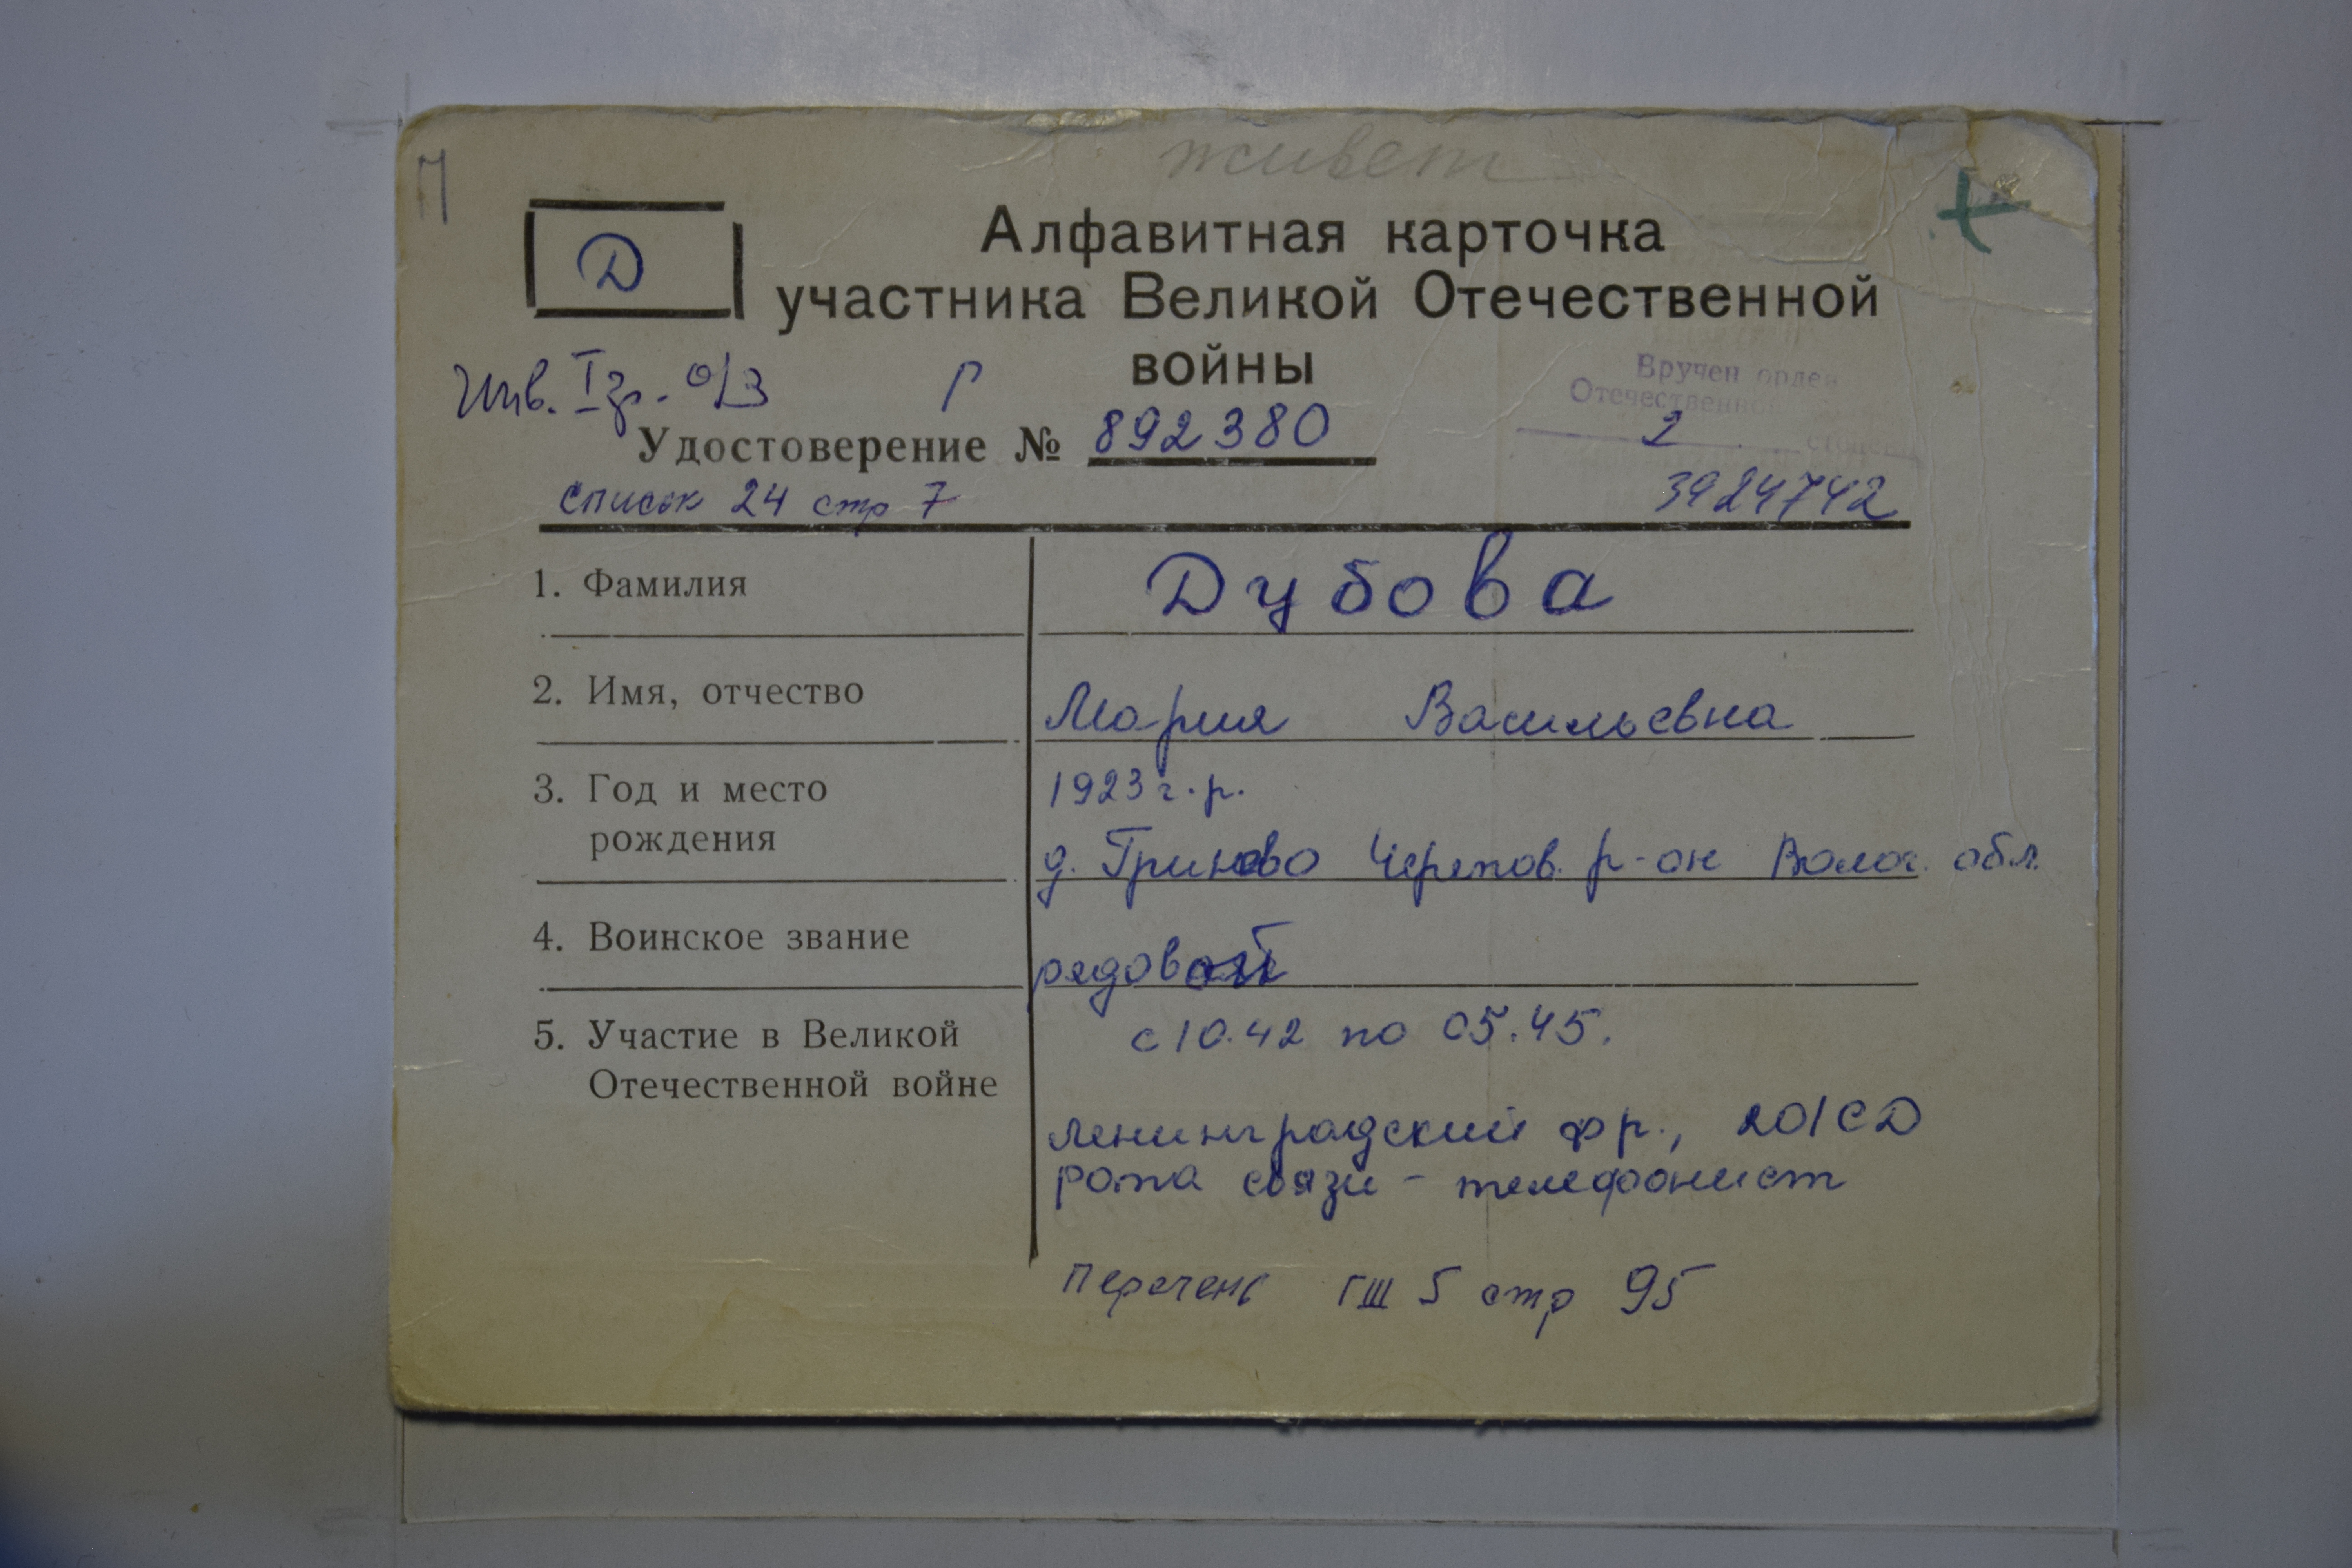 живет
П
Д
Алфавитная карточка
участника Великой Отечественной
войны
Инв. I гр. о/з Р
Вручен орден
Отечественной
2 степени
Удостоверение № 892380
список 24 стр 7
3924742
1. Фамилия
Дубова
2. Имя, отчество
Мария Васильевна
3. Год и место
рождения
1923 г.р.
д. Гриново Черепов. р-он Волог. обл.
4. Воинское звание
рядовой
5. Участие в Великой
Отечественной войне
с 10.42 по 05.45.
Ленинградский фр., 201 СД
рота связи - телефонист
Перечень ГШ 5 стр 95